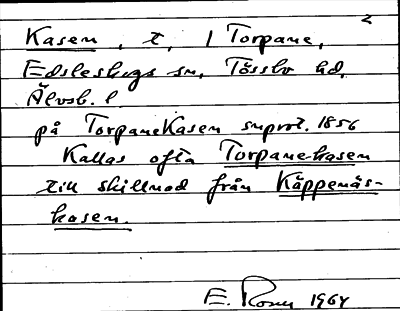 2
Kasen, t, / Torpane,
Edsleskogs sn, Tössbo hd,
Älvsb. l
på TorpaneKasen suprot. 1856
Kallas ofta Torpane-kasen
till skillnad från Käppenäs-
kasen.
E. 1964